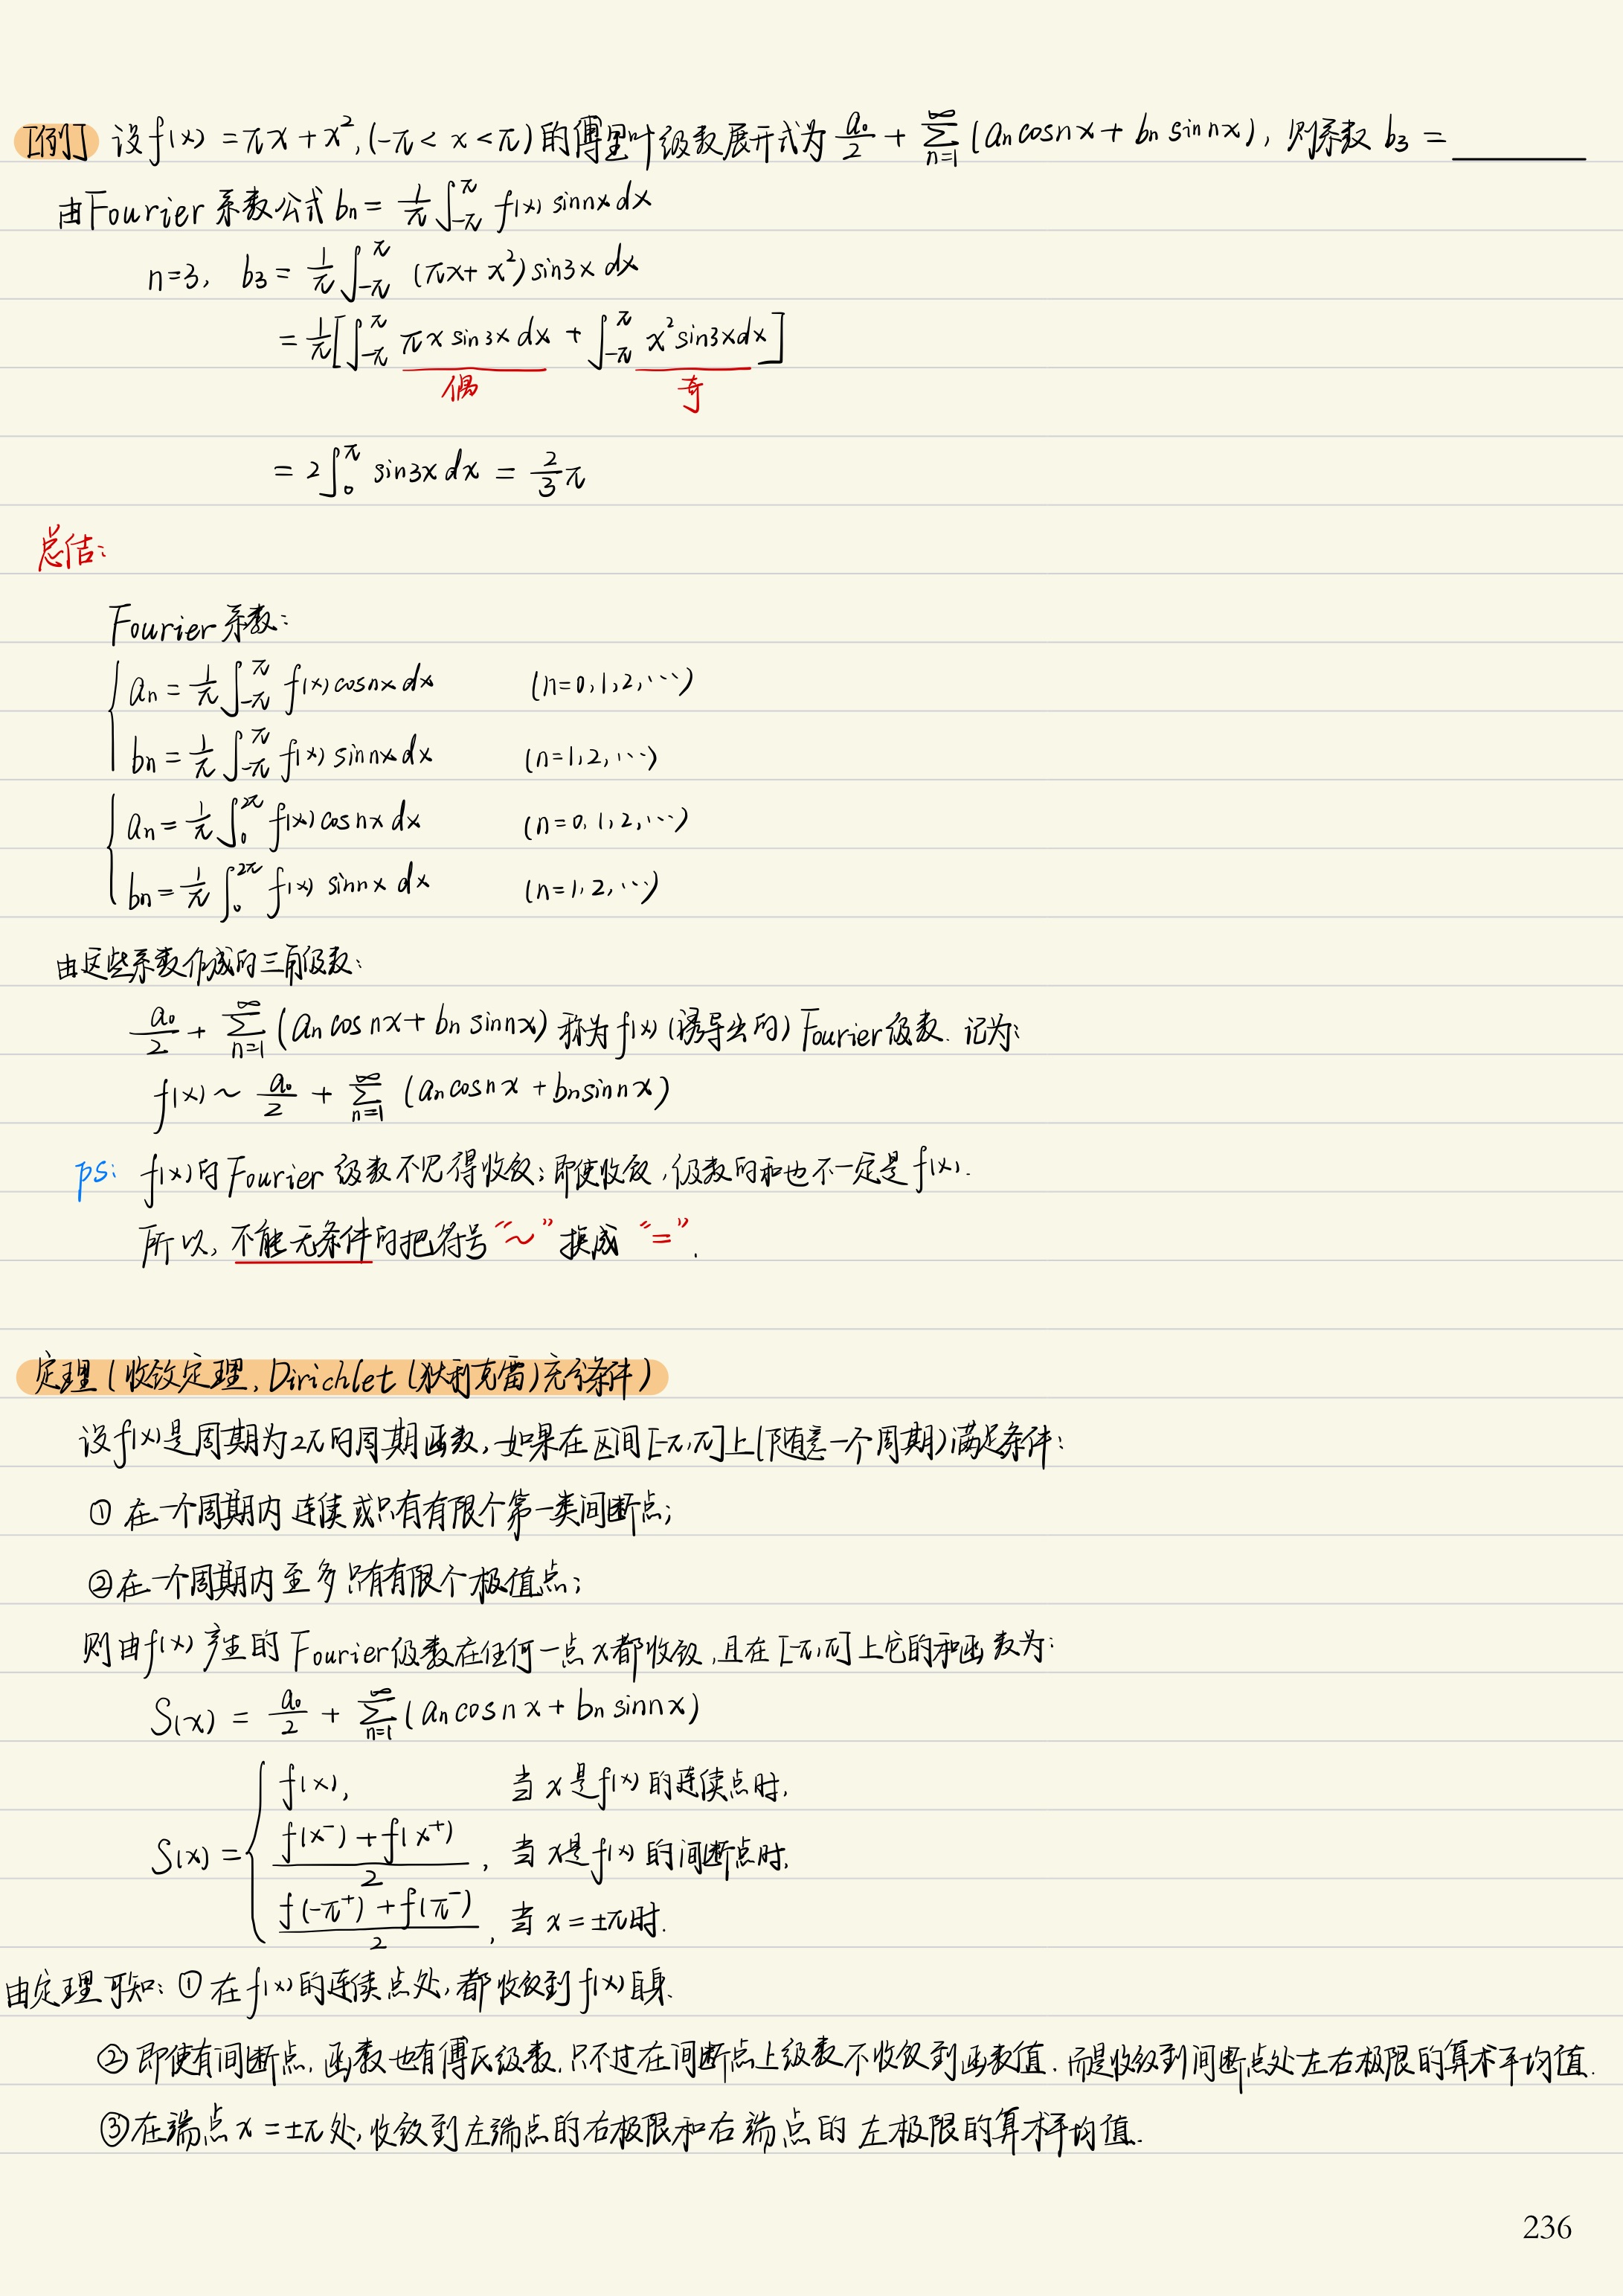 [例] 设f(x) = πx + x², (-π < x < π) 的傅里叶级数展开式为 a₀/2 + ∑_{n=1}^{∞} (aₙcosnx + bₙ sin nx), 则系数 b₃ = ______
由Fourier 系数公式 bₙ = 1/π ∫_{-π}^{π} f(x) sinnx dx
n=3, b₃ = 1/π ∫_{-π}^{π} (πx + x²) sin3x dx
= 1/π [∫_{-π}^{π} πx sin3x dx + ∫_{-π}^{π} x² sin3x dx]
偶 奇
= 2∫_{0}^{π} sin3x dx = 2/3 π
总结:
Fourier 系数:
{ aₙ = 1/π ∫_{-π}^{π} f(x) cosnx dx (n=0,1,2,⋯)
bₙ = 1/π ∫_{-π}^{π} f(x) sinnx dx (n=1,2,⋯)
{ aₙ = 1/π ∫_{0}^{2π} f(x) cosnx dx (n=0,1,2,⋯)
bₙ = 1/π ∫_{0}^{2π} f(x) sinnx dx (n=1,2,⋯)
由这些系数作成的三角级数:
a₀/2 + ∑_{n=1}^{∞} (aₙ cos nx + bₙ sinnx) 称为 f(x) (诱导出的) Fourier级数. 记为:
f(x) ~ a₀/2 + ∑_{n=1}^{∞} (aₙcosnx + bₙsinnx)
ps: f(x)的Fourier 级数不见得收敛; 即使收敛, 级数的和也不一定是 f(x).
所以, 不能无条件的把符号“~”换成“=”.
定理 (收敛定理, Dirichlet (狄利克雷) 充分条件)
设f(x)是周期为2π的周期函数, 如果在区间[-π,π]上(随意一个周期)满足条件:
① 在一个周期内连续或只有有限个第一类间断点;
② 在一个周期内至多只有有限个极值点;
则由f(x)产生的 Fourier级数在任何一点x都收敛, 且在[-π,π]上它的和函数为:
S(x) = a₀/2 + ∑_{n=1}^{∞} (aₙ cosnx + bₙ sinnx)
S(x) = { f(x), 当x是f(x)的连续点时,
(f(x⁻) + f(x⁺))/2, 当x是f(x)的间断点时,
(f(-π⁺) + f(π⁻))/2, 当x = ±π时.
由定理可知: ① 在f(x)的连续点处, 都收敛到f(x)自身.
② 即使有间断点, 函数也有傅氏级数, 只不过在间断点上级数不收敛到函数值. 而是收敛到间断点处左右极限的算术平均值.
③ 在端点x = ±π处, 收敛到左端点的右极限和右端点的左极限的算术平均值.
236